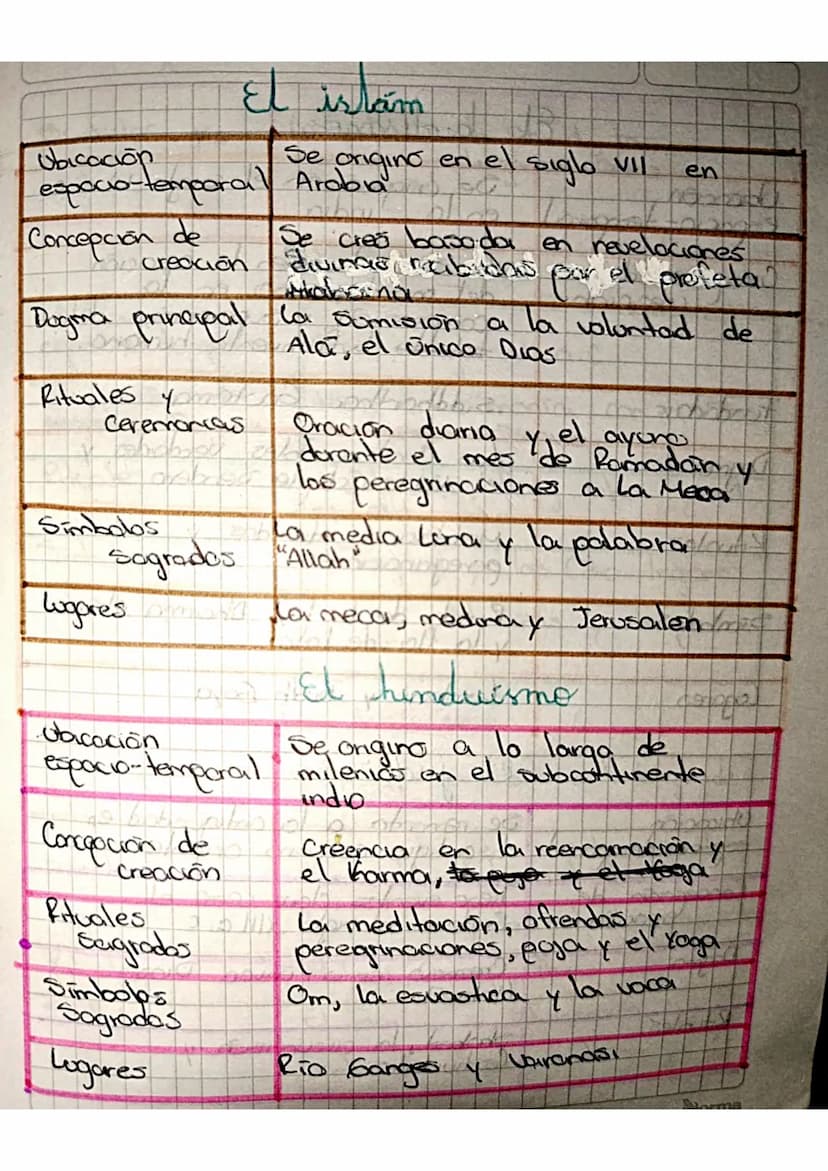 El islám
Ubicación
espacio-temporal
Se origino en el siglo VII en
Arabia
Concepción de
creación
Se creó basada en revelaciones
divinas recibidas por el profeta
Dogma principal
La sumisión a la voluntad de
Alá, el único Dios
Rituales y
Ceremonias
Oración diaria y el ayuno
durante el mes de Ramadán y
los peregrinaciones a La Meca
Simbolos
sagrados
La media Luna y la palabra
"Allah"
lugares
La meca, medina y Jerusalen
El hinduismo
Ubicación
espacio-temporal
Se origino a lo largo de
milenios en el subcontinente
indio
Concepción de
creación
Creencia en la reencarnación y
el Karma, la puja y el Yoga
Rituales
sagrados
La meditación, ofrendas y
peregrinaciones, puja y el Yoga
Simbolos
Sagrados
Om, la esvastica y la vaca
lugares
Río Ganges y Varanasi
Norma